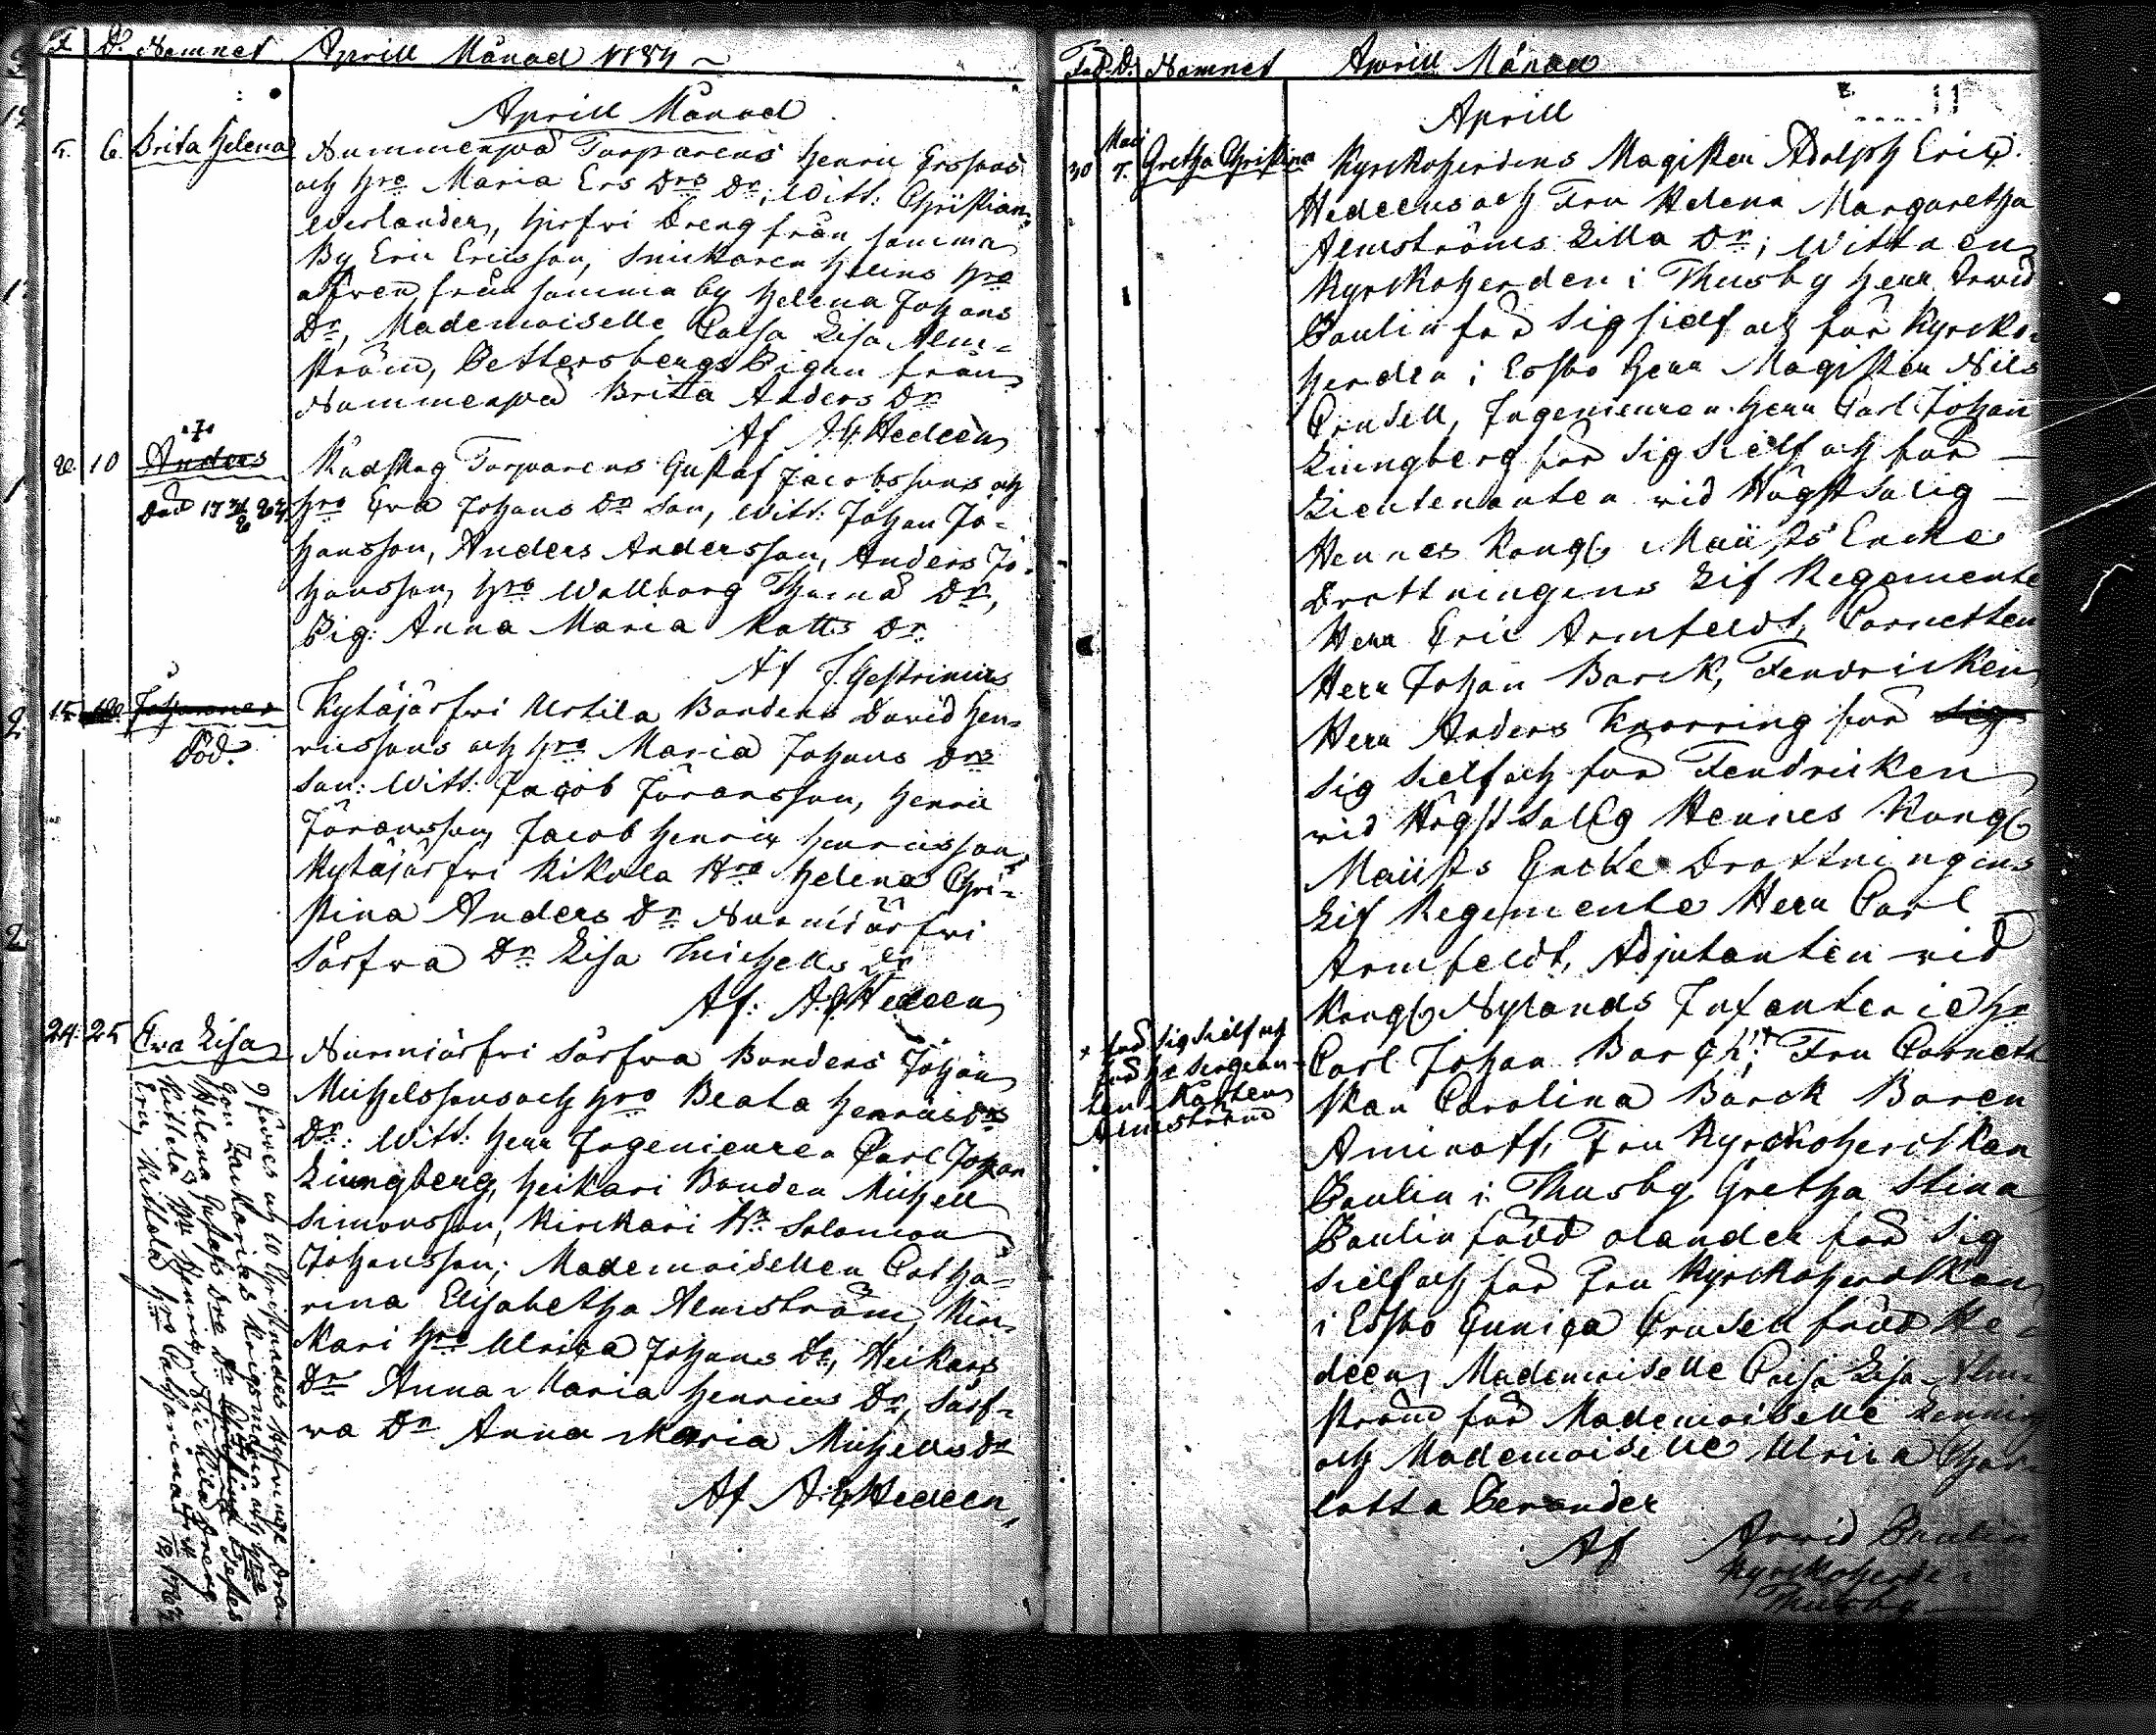 F. D. Namnet Aprill Månad 1784
Aprill Månad
5. 6. Brita Helena
Nummenpää Torparens Henric Erssons
och Hro Maria Ers Drs Dr; Witt: Christian
Werlander, Hirfwi Dreng från samma
By Eric Ericsson, Snickaren Helins Hro
äfven från samma by Helena Johans
Dr, Mademoiselle Caisa Lisa Alm=
ström, Pettersbergs Pigan från
Nummenpää Brita Anders Dr
Af A: E: Hedeen
8. 10 Anders
död 17
Torparens Gustaf Jacobssons och
Hro Eva Johans Dr Son, Witt: Johan Jo=
hansson, Anders Andersson, Anders Jo=
hansson, Hro Wallborg Thomæ Dr,
Pig: Anna Maria Matts Dr
Af J. Gestrinius
15. Johannes
död.
Kytäjärfwi Urtila Bondens David Hen=
ricssons och Hro Maria Johans Drs
Son: Witt: Jacob Göransson, Henric
Göransson, Jacob Henric Henricsson,
Kytäjärfwi Kikola Hro Helena Chri=
stina Anders Dr Nurmijärfwi
Särfwa Dr Lisa Michells Dr
Af: A. E. Hedeen
24. 25 Eva Lisa
Nurmijärfwi Särfwa Bondens Johan
Michelssons och Hro Beata Henrics Drs
Dr: Witt: Herr Ingenieuren Carl Johan
Liungberg, Heikari Bonden Michell
Simonsson, Kirckari Hr Salomon
Johansson; Mademoisellen Catha=
rina Elisabetha Almström, Kirc=
kari Hro Ulrica Johans Dr, Heikari
Dr Anna Maria Henrics Dr, Särf=
wa Dr Anna Maria Michells Dr
Af A: E: Hedeen
Föd. D. Namnet Aprill Månad
Aprill
30 Maij 7. Gretha Christina
Kyrckoherdens Magister Adolph Eric
Hedeens och Fru Helena Margaretha
Almströms Lilla Dr; Wittnen
Kyrckoherden i Thusby Herr Arvid
Paulin för Sig sielf och för Kyrcko=
herden i Esbo Herr Magister Nils
Crusell, Ingenieuren Herr Carl Johan
Liungberg för Sig Sielf och för
Lieutenanten vid Högstsalig
Hennes Kongl. Maij:ts Encke
Drottningens Lif Regemente
Herr Eric Armfeldt, Cornetten
Herr Johan Barck, Fendricken
Herr Anders Knorring för Sig
Sig Sielf och för Fendricken
vid Högstsalig Hennes Kongl.
Maij:ts Encke Drottningens
Lif Regemente Herr Carl
Armfeldt, Adjutanten vid
Kongl. Nylands Infanterie Hr
Carl Johan Barck; Fru Cornett
skan Carolina Barck Boren
Aminoff, Fru Kyrckoherdskan
Paulin i Thusby Gretha Stina
Paulin född Olander för Sig
Sielf och för Fru Kyrckoherdskan
i Esbo Eunica Crusell född He=
deen, Mademoiselle Caisa Lisa Alm=
ström för Mademoiselle
och Mademoiselle Ulrica Char=
lotta Cerander
Af Arvid Paulin
Kyrckoherde i
Thusby
× för Sig Sielf och
för Hr Sergean=
ten Mårten
Almström